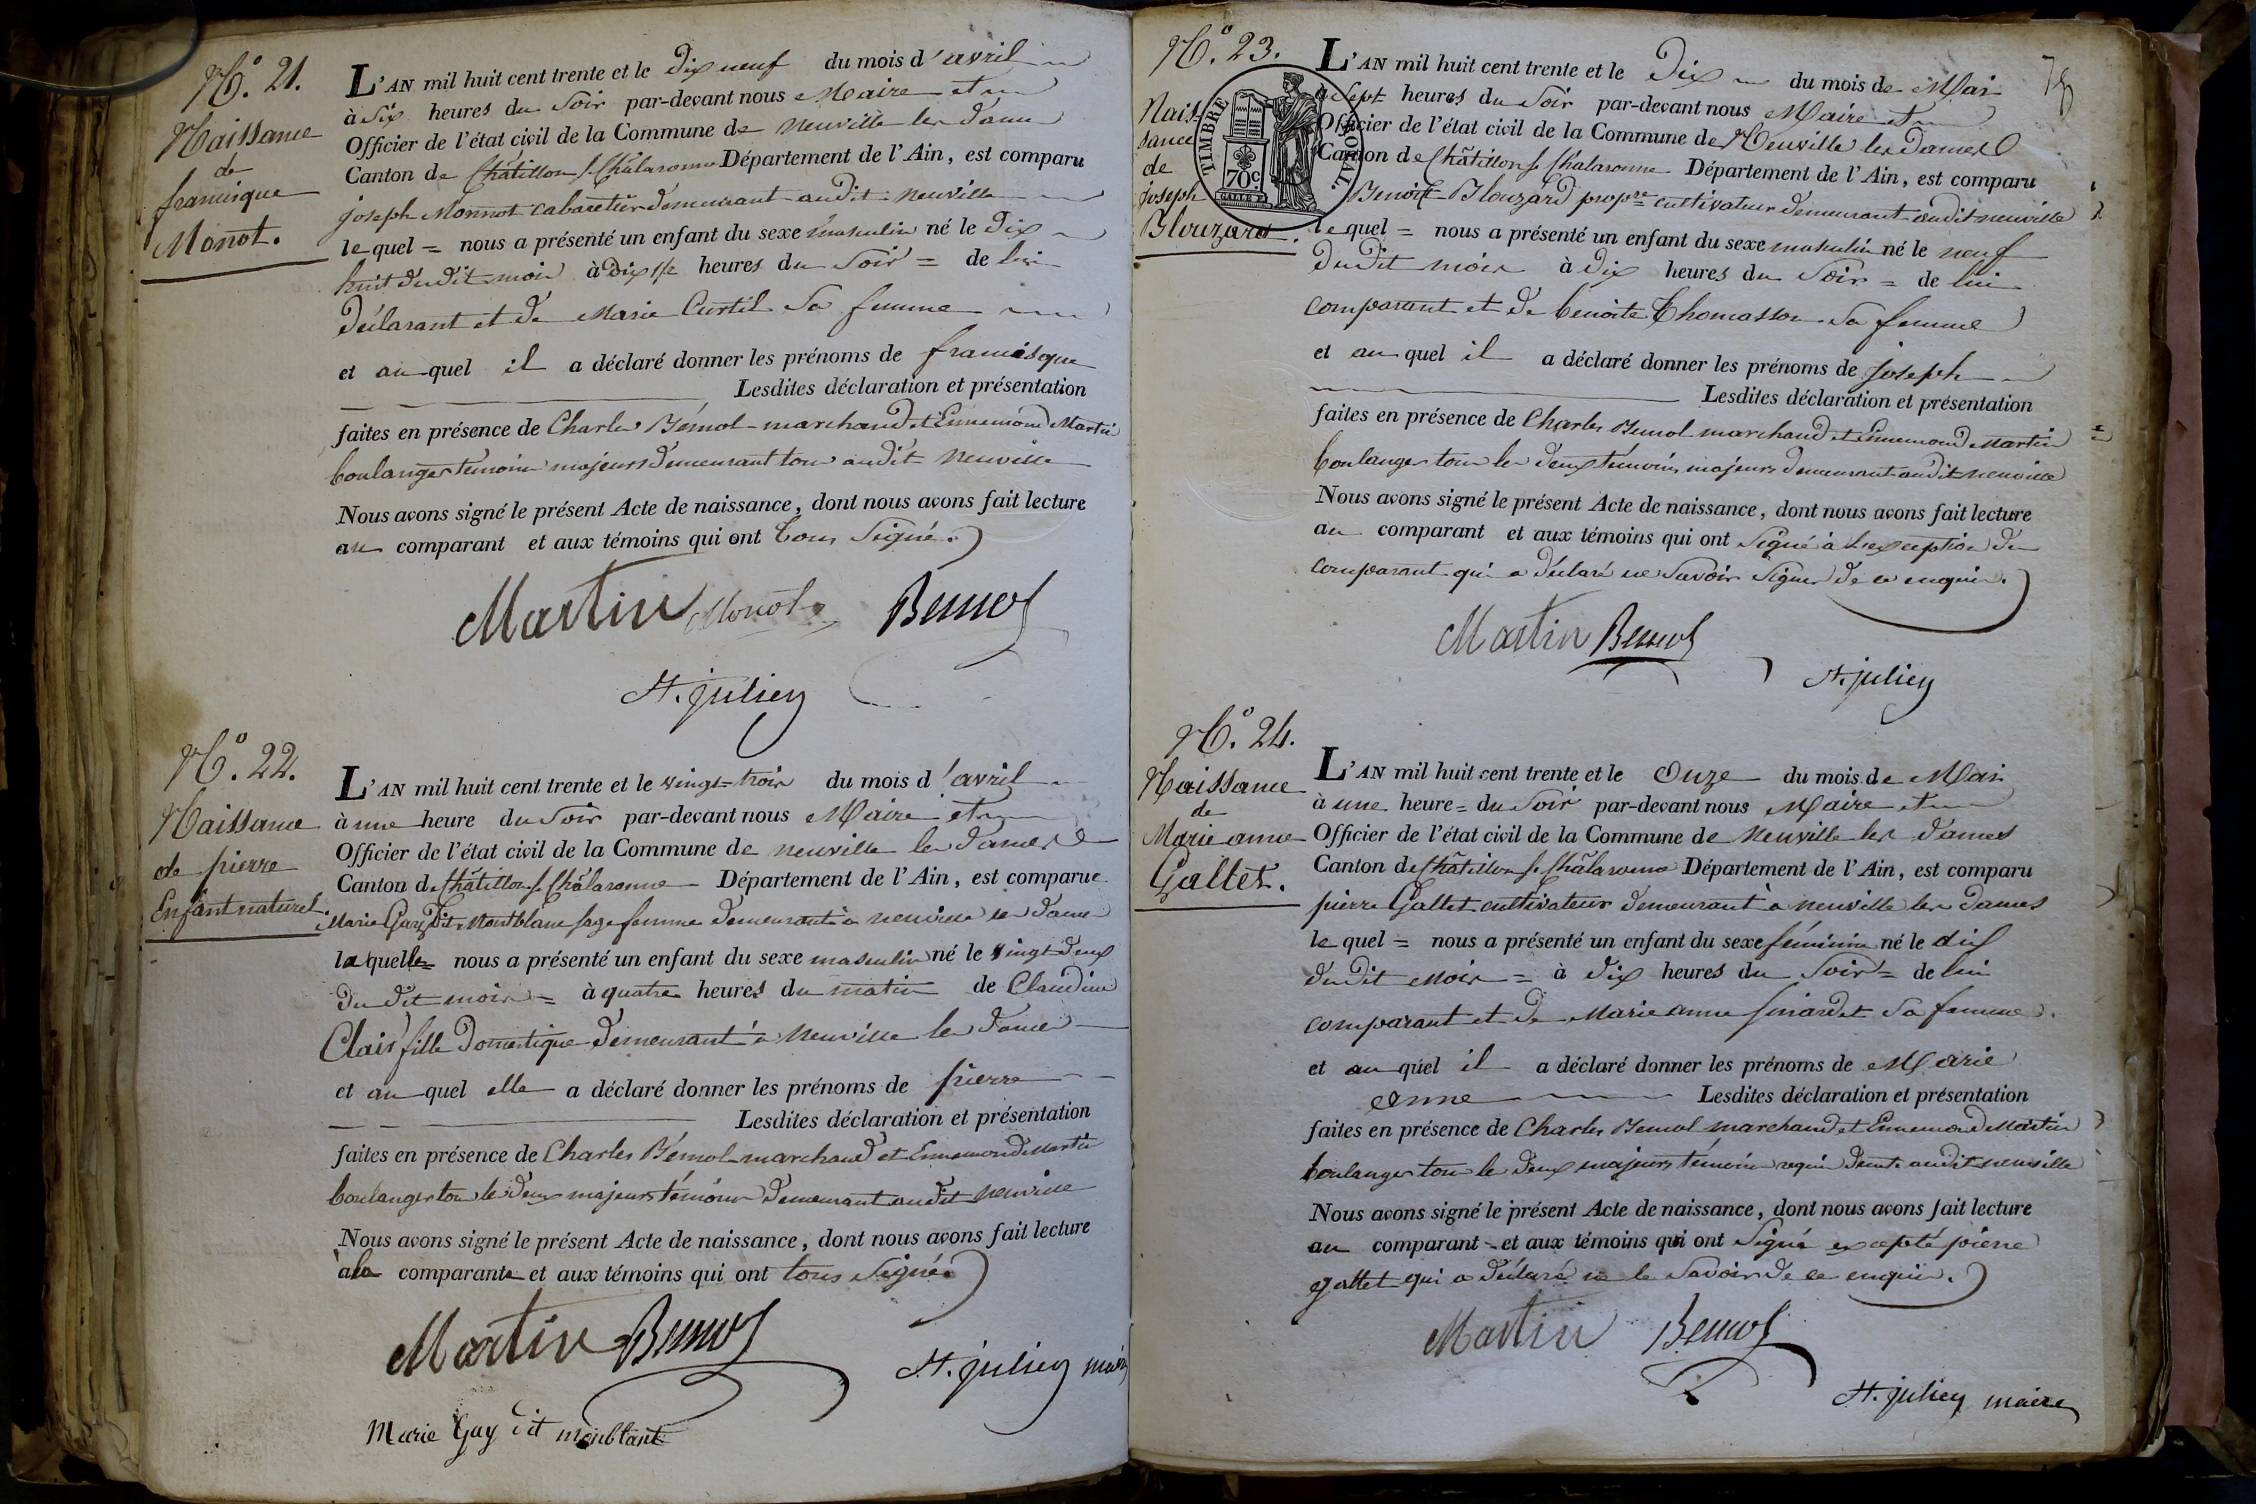 N.º 21.
Naissance
de
francisque
Monot.
L'AN mil huit cent trente et le Dix neuf du mois d'avril
à Six heures du Soir par-devant nous Maire et
Officier de l'état civil de la Commune de Neuville les Dames
Canton de Châtillon s. Châlaronne Département de l'Ain, est comparu
joseph Monnot cabaretier demeurant audit Neuville
le quel = nous a présenté un enfant du sexe masculin né le Dix
huit dudit mois à Dix 1/2 heures du Soir = de lui
Déclarant et de Marie Curtil Sa femme
et au quel il a déclaré donner les prénoms de francisque
Lesdites déclaration et présentation
faites en présence de Charles Bémol marchand et Ennemond Martin
boulanger témoins majeurs demeurant tous audit Neuville
Nous avons signé le présent Acte de naissance, dont nous avons fait lecture
au comparant et aux témoins qui ont tous Signé.
Martin Monot Bemol
St. julien
N.º 22.
Naissance
de pierre
Enfant naturel.
L'AN mil huit cent trente et le vingt-trois du mois d'avril
à une heure du Soir par-devant nous Maire et
Officier de l'état civil de la Commune de neuville les Dames
Canton de Châtillon s. Châlaronne Département de l'Ain, est comparue
Marie Gay Dit Montblanc sage femme demeurant à neuville les Dames
la quelle = nous a présenté un enfant du sexe masculin né le vingt Deux
Du dit mois = à quatre heures du matin de Claudine
Clais fille Domestique demeurant à Neuville les Dames
et au quel elle a déclaré donner les prénoms de pierre
Lesdites déclaration et présentation
faites en présence de Charles Bémol marchand et Ennemond Martin
boulanger tous les Deux majeurs témoins Demeurant audit Neuville
Nous avons signé le présent Acte de naissance, dont nous avons fait lecture
à la comparante et aux témoins qui ont tous Signé.
Martin Bemol
St. julien maire
Marie Gay dit monblant
78
N.º 23.
Nais-
sance
de
joseph
Blouzard.
TIMBRE ROYAL.
70c.
L'AN mil huit cent trente et le Dix du mois de Mai
à Sept heures du Soir par-devant nous Maire et
Officier de l'état civil de la Commune de Neuville les Dames
Canton de Châtillon s. Chalaronne Département de l'Ain, est comparu
Benoit Blouzard propre cultivateur demeurant audit neuville
le quel = nous a présenté un enfant du sexe masculin né le neuf
Dudit mois à Dix heures du Soir = de lui
comparant et de benoite Thomasson Sa femme
et au quel il a déclaré donner les prénoms de joseph
Lesdites déclaration et présentation
faites en présence de Charles Bemol marchand et Ennemond Martin
boulanger tous les Deux témoins majeurs demeurant audit neuville
Nous avons signé le présent Acte de naissance, dont nous avons fait lecture
au comparant et aux témoins qui ont Signé à l'exception du
comparant qui a déclaré ne Savoir Signer de ce enquis.
Martin Bemol
St. julien
N.º 24.
Naissance
de
Marie anne
Gallet.
L'AN mil huit cent trente et le Onze du mois de Mai
à une heure = du Soir par-devant nous Maire et
Officier de l'état civil de la Commune de Neuville les Dames
Canton de Châtillon s. Châlaronne Département de l'Ain, est comparu
pierre Gallet cultivateur demeurant à neuville les Dames
le quel = nous a présenté un enfant du sexe féminin né le dix
dudit Mois = à Dix heures du Soir = de lui
comparant et de Marie anne Sa femme.
et au quel il a déclaré donner les prénoms de Marie
anne Lesdites déclaration et présentation
faites en présence de Charles Bemol marchand et Ennemond Martin
boulanger tous les Deux majeurs témoins requis Demts audit neuville
Nous avons signé le présent Acte de naissance, dont nous avons fait lecture
au comparant et aux témoins qui ont Signé excepté pierre
gallet qui a déclaré ne le Savoir de ce enquis.
Martin Bemol
St. julien maire